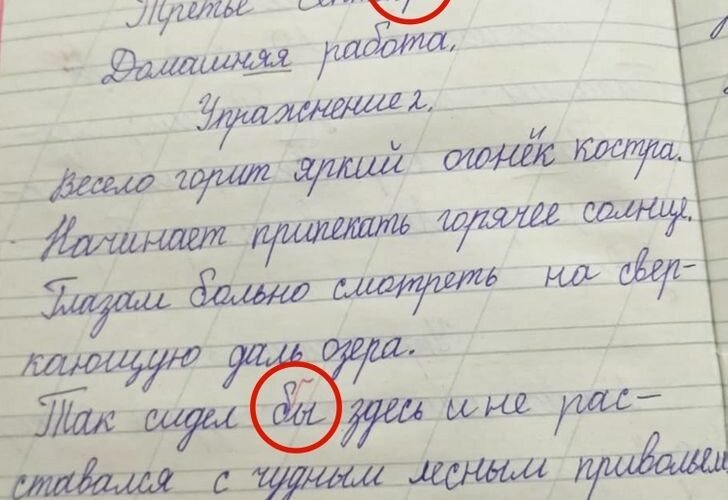 Третье
Домашняя работа.
Упражнение 2.
Весело горит яркий огонёк костра.
Начинает припекать горячее солнце.
Глазам больно смотреть на свер-
кающую даль озера.
Так сидел бы здесь и не рас-
ставался с чудным лесным привольем